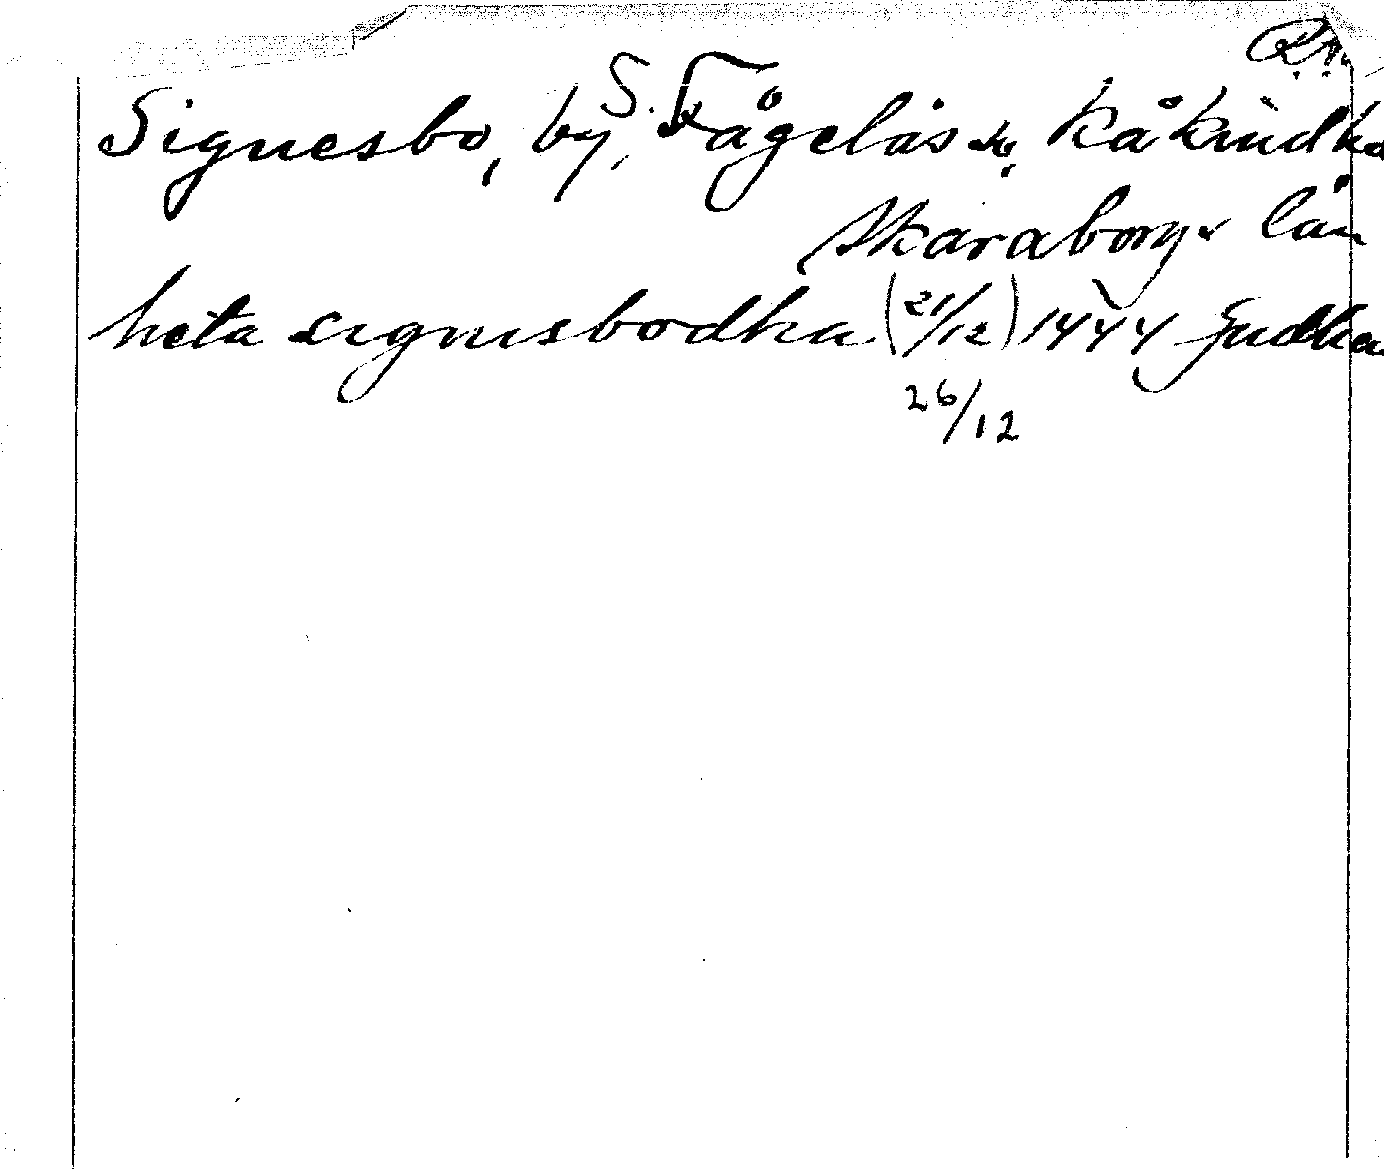 R.A.
Signesbo, by, S. Fågelås sn, Kåkinds hd
Skaraborgs län
heta signisbodha (21/12) 1444
26/12